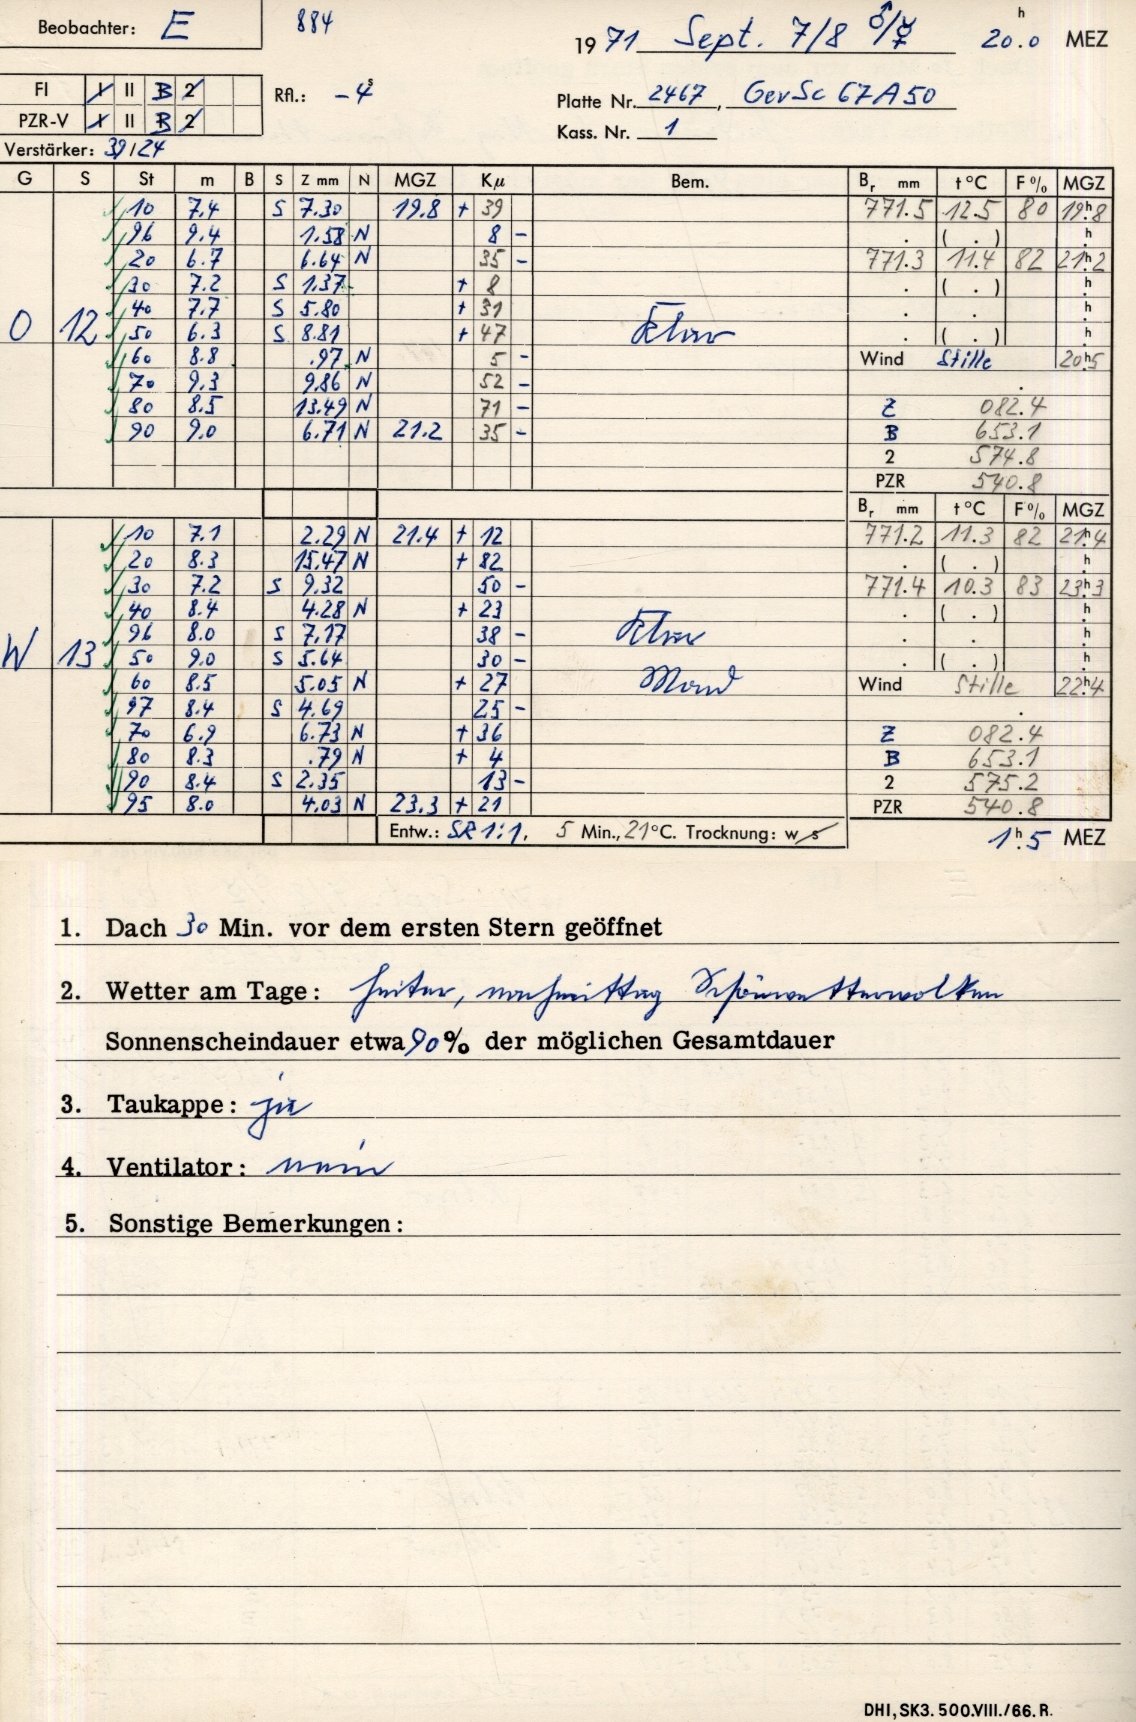 Beobachter: E 884 19 71 Sept. 7/8 ♂/☿ 20.0 h MEZ
FI I II B 2 Rfl.: -4 s Platte Nr. 2467, GevSc 67A50
PZR-V I II B 2 Kass. Nr. 1
Verstärker: 39/24
G S St m B S Z mm N MGZ Kμ Bem. Br mm t°C F% MGZ
10 7.4 S 7.30 19.8 + 39 771.5 12.5 80 19h.8
96 9.4 1.58 N 8 - . ( . ) h
20 6.7 6.64 N 35 - 771.3 11.4 82 21h.2
30 7.2 S 1.37 + 8 . ( . ) h
40 7.7 S 5.80 + 31 . . h
O 12 50 6.3 S 8.81 + 47 Klar . ( . ) h
60 8.8 .97 N 5 - Wind Stille 20h.5
70 9.3 9.86 N 52 - .
80 8.5 13.49 N 71 - Z 082.4
90 9.0 6.71 N 21.2 35 - B 653.1
2 574.8
PZR 540.8
Br mm t°C F% MGZ
10 7.1 2.29 N 21.4 + 12 771.2 11.3 82 21h.4
20 8.3 15.47 N + 82 . ( . ) h
30 7.2 S 9.32 50 - 771.4 10.3 83 23h.3
40 8.4 4.28 N + 23 . ( . ) h
96 8.0 S 7.17 38 - Klar . . h
W 13 50 9.0 S 5.64 30 - . ( . ) h
60 8.5 5.05 N + 27 Mond Wind Stille 22h.4
97 8.4 S 4.69 25 - .
70 6.9 6.73 N + 36 Z 082.4
80 8.3 .79 N + 4 B 653.1
90 8.4 S 2.35 13 - 2 575.2
95 8.0 4.03 N 23.3 + 21 PZR 540.8
Entw.: SR 1:1, 5 Min., 21°C. Trocknung: w s 1h.5 MEZ
1. Dach 30 Min. vor dem ersten Stern geöffnet
2. Wetter am Tage: heiter, nachmittag Schönwetterwolken
Sonnenscheindauer etwa 90% der möglichen Gesamtdauer
3. Taukappe: ja
4. Ventilator: nein
5. Sonstige Bemerkungen:
DHI, SK3. 500.VIII./66. R.